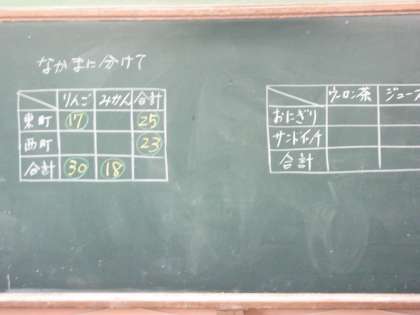 なかまに分けて
りんご みかん 合計
東町 17 25
西町 23
合計 30 18
ウーロン茶 ジュース
おにぎり
サンドイッチ
合計